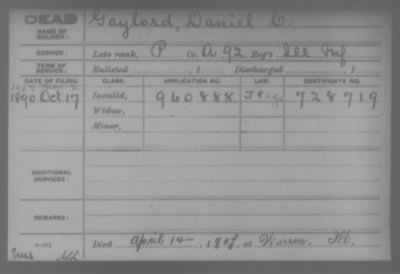 DEAD
NAME OF SOLDIER: Gaylord, Daniel C.
SERVICE: Late rank, P Co. A. 92 Reg't Ill Inf
TERM OF SERVICE: Enlisted , 1 Discharged , 1
DATE OF FILING. CLASS. APPLICATION NO. LAW. CERTIFICATE NO.
1890 Oct 17 Invalid, 960888 728719
Widow,
Minor,
ADDITIONAL SERVICES:
REMARKS:
Died April 14 , 1907, at Warren, Ill.